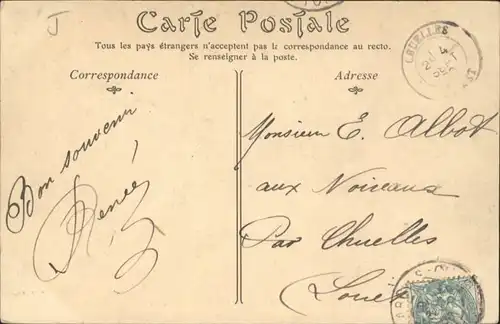 J
Carte Postale
Tous les pays étrangers n'acceptent pas la correspondance au recto.
Se renseigner à la poste.
Correspondance
Adresse
Bon souvenir
Renée
Monsieur E. Albot
aux Noiceaux
Par Chuelles
Loiret
CHUELLES